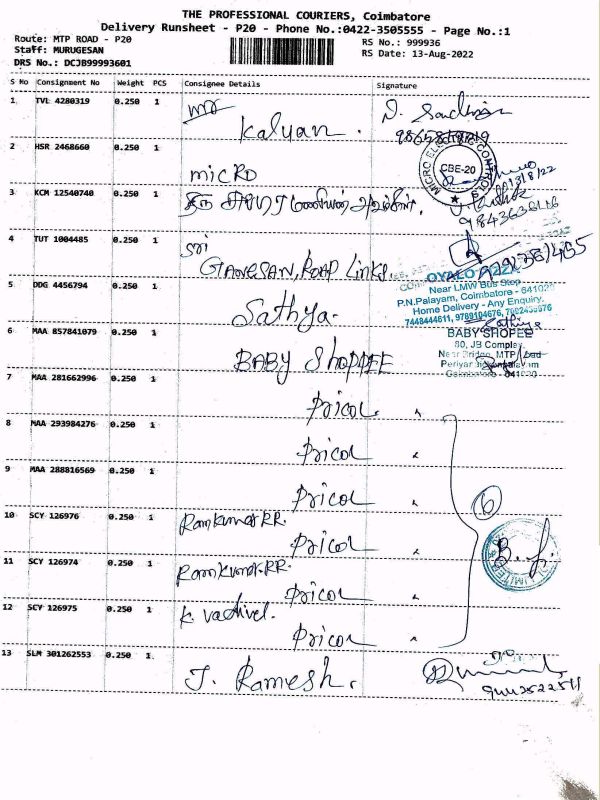 THE PROFESSIONAL COURIERS, Coimbatore
Delivery Runsheet - P20 - Phone No.:0422-3505555 - Page No.:1
Route: MTP ROAD - P20
RS No.: 999936
Staff: MURUGESAN
RS Date: 13-Aug-2022
DRS No.: DCJB99993601
S No Consignment No Weight PCS Consignee Details Signature
1 TVL 4280319 0.250 1
Kalyan.
2 HSR 2468660 0.250 1
micro
MICRO ELECTRIC CONTROLS
CBE-20
3 KCM 12540740 0.250 1 திரு
4 TUT 1004485 0.250 1 Sri
GANESAN, ROAD Links
5 DDG 4456794 0.250 1
Sathya.
OYALO PIZZA
Near LMW Bus Stop
P.N.Palayam, Coimbatore - 641020
Home Delivery - Any Enquiry.
7448444611, 9789104676,
6 MAA 857841079 0.250 1
BABY SHOPPEE
Sathiya
BABY SHOPEE
80, JB Complex
Near Bridge, MTP Road
Coimbatore - 641020
7 MAA 281662996 0.250 1
Pricol "
8 MAA 293984276 0.250 1
Pricol "
9 MAA 288816569 0.250 1
Pricol
6
10 SCY 126976 0.250 1 Ramkumar RR.
Pricol "
11 SCY 126974 0.250 1 Ramkumar.RR.
Pricol "
12 SCY 126975 0.250 1 K. Vadivel.
Pricol "
13 SLM 301262553 0.250 1
J. Ramesh.